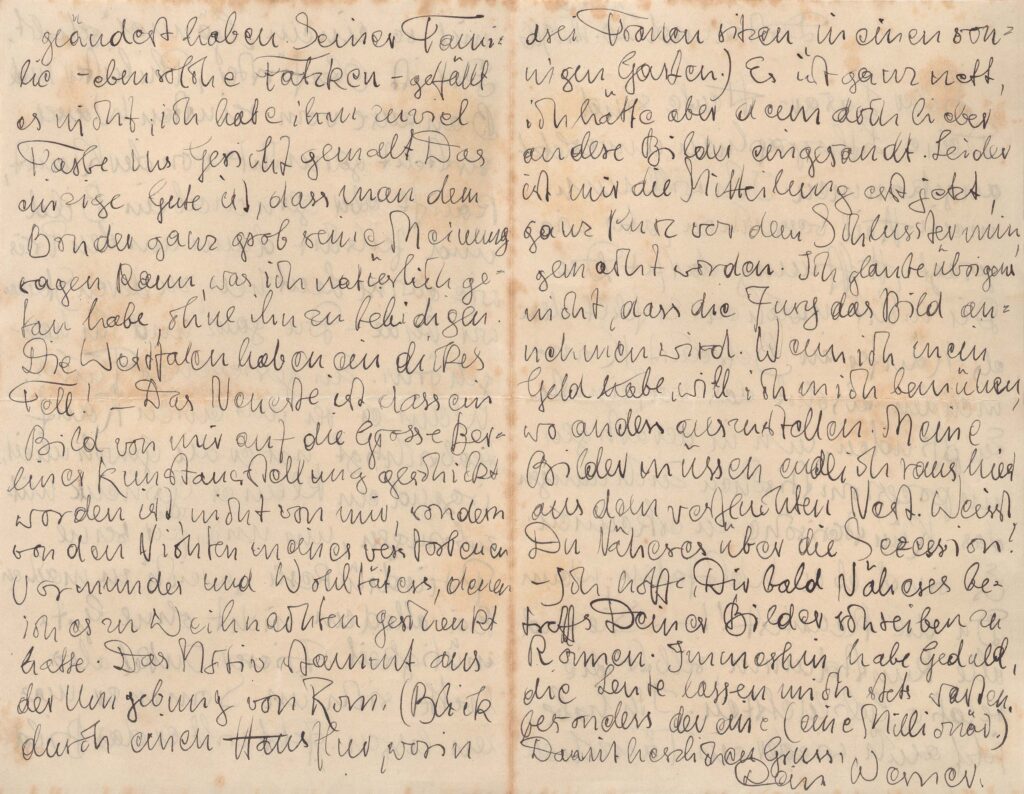 geändert haben. Seiner Fami-
lie - ebensolche Fatzken - gefällt
es nicht, ich habe ihm zuviel
Farbe ins Gesicht gemalt. Das
einzige Gute ist, dass man dem
Bruder ganz grob seine Meinung
sagen kann, was ich natürlich ge-
tan habe, ohne ihn zu beleidigen.
Die Westfalen haben ein dickes
Fell! - Das Neueste ist dass ein
Bild von mir auf die Grosse Ber-
liner Kunstausstellung geschickt
worden ist, nicht von mir, sondern
von den Nichten meines verstorbenen
Vormundes und Wohltäters, denen
ich es zu Weihnachten geschenkt
hatte. Das Motiv stammt aus
der Umgebung von Rom. (Blick
durch einen Hausflur, worin
drei Frauen sitzen in einen son-
nigen Garten.) Es ist ganz nett,
ich hätte aber denn doch lieber
andere Bilder eingesandt. Leider
ist mir die Mitteilung erst jetzt,
ganz kurz vor dem Schlusstermin,
gemacht worden. Ich glaube übrigens
nicht, dass die Jury das Bild an-
nehmen wird. Wenn ich mein
Geld habe, will ich mich bemühen,
wo anders auszustellen. Meine
Bilder müssen endlich raus hier
aus dem verfluchten Nest. Weisst
Du Näheres über die Sezession?
- Ich hoffe, Dir bald Näheres be-
treffs Deiner Bilder schreiben zu
können. Immerhin habe Geduld,
die Leute lassen mich stets warten.
besonders der eine (eine Millionär.)
Damit herzlichen Gruss
Dein Werner.